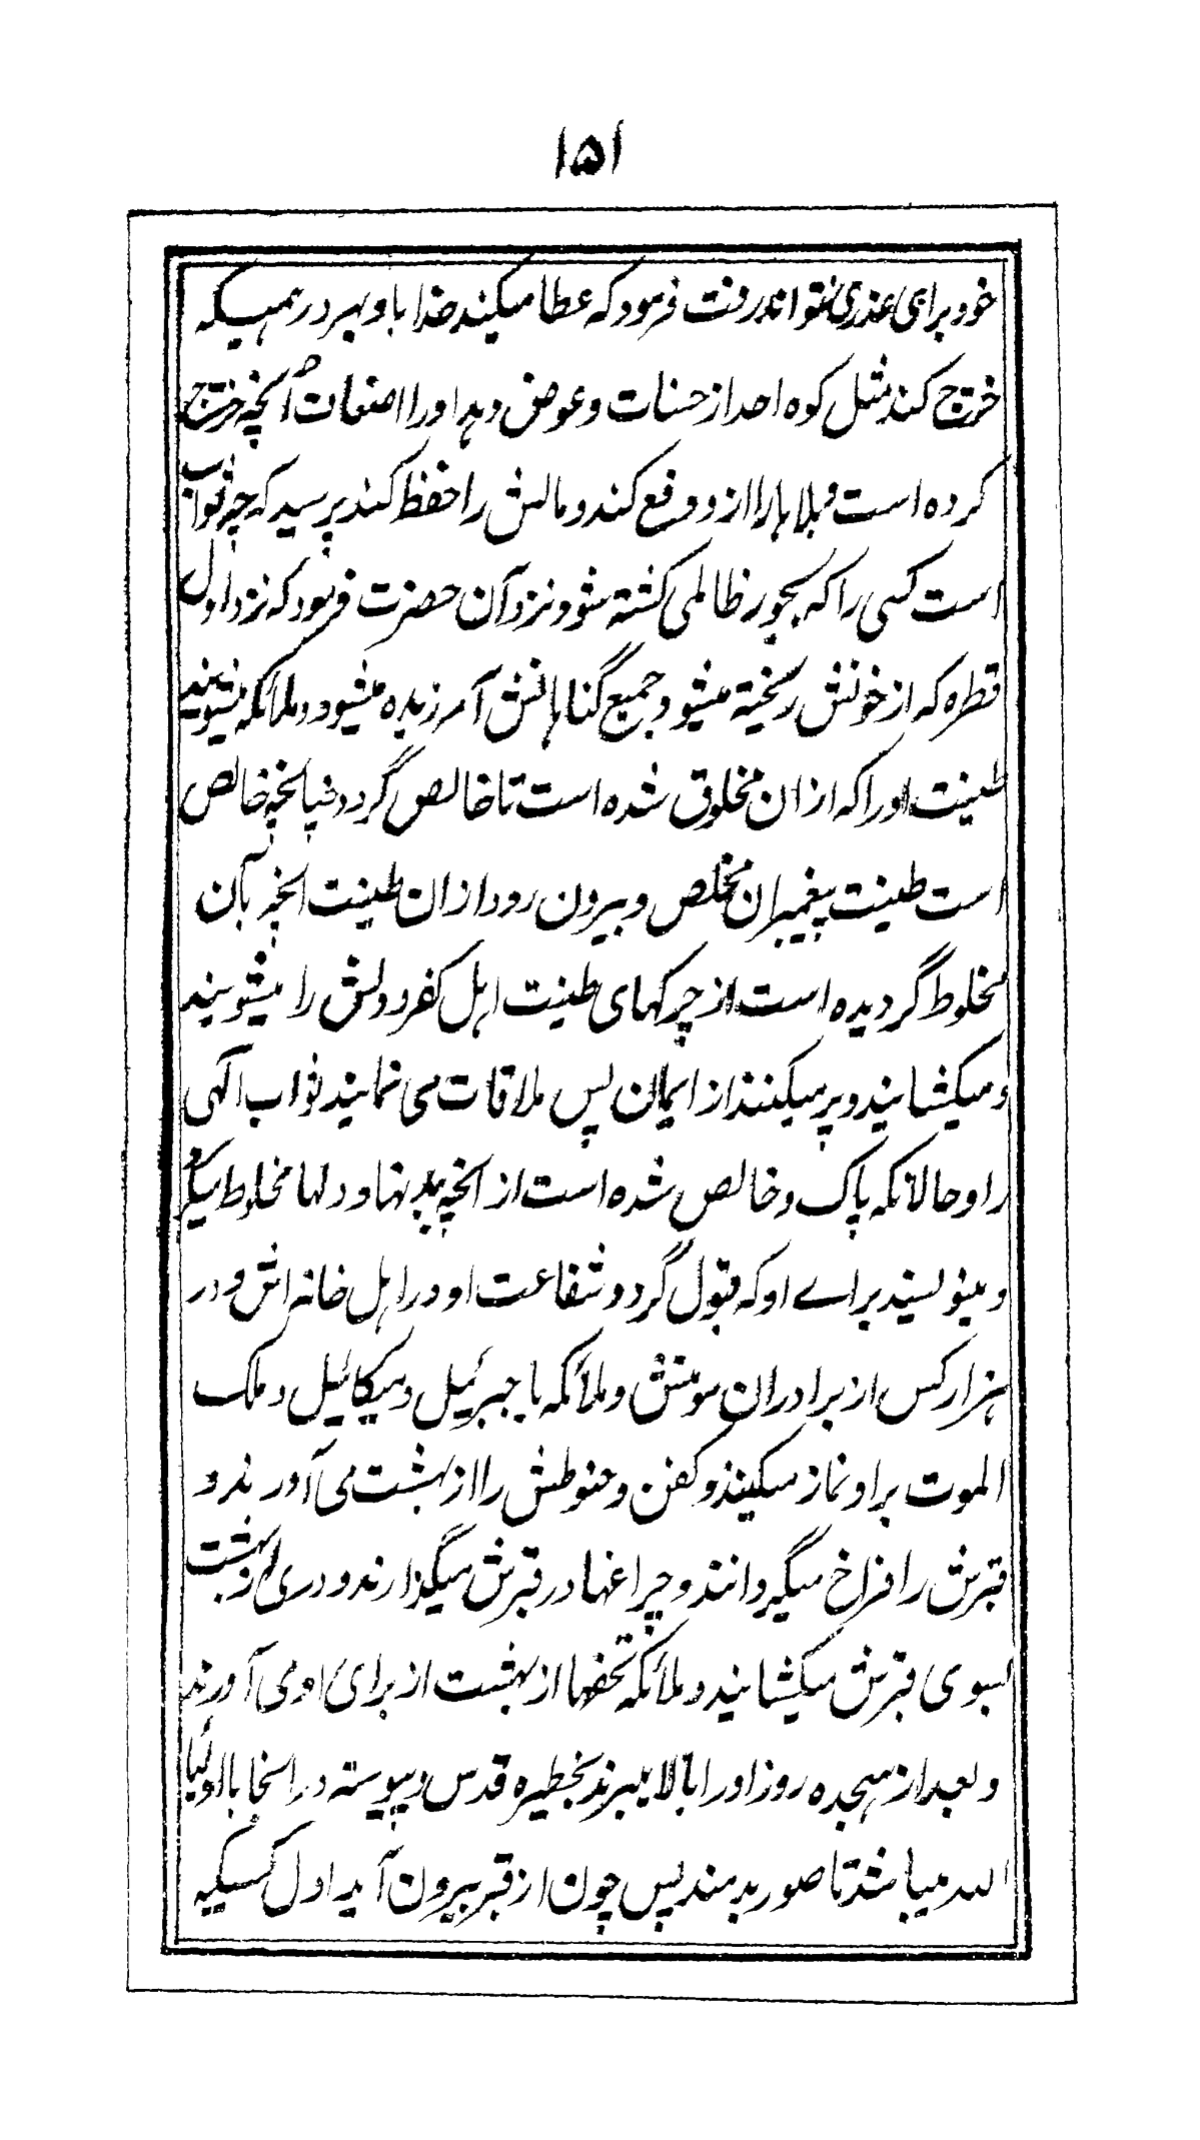 ۱۵۱
خود برای عذری نتواند رفت فرمود که عطا میکند خدا باو بهر درهمیکه
خرج کند مثل کوه احد از حسنات و عوض دهد او را اضعاف آنچه خرج
کرده است و بلاها را از و دفع کند و مالش را حفظ کند پرسید که چه ثواب
است کسی را که بجور ظالمی کشته شود نزد آن حضرت فرمود که نزد اول
قطره که از خونش ریخته میشود جمیع گناهانش آمرزیده میشود و ملائکه میشویند
طینت او را که ازان مخلوق شده است تا خالص گردد چنانچه خالص
است طینت پیغمبران مخلص و بیرون رود ازان طینت آنچه بآن
مخلوط گردیده است از چرکهای طینت اهل کفر و دلش را میشویند
و میکشایند و پر میکنند از ایمان پس ملاقات می نمایند ثواب الهی
را و حالانکه پاک و خالص شده است از آنچه بدنها و دلها مخلوط میگردد
و مینویسند برای او که قبول گردد شفاعت او در اهل خانه اش و در
هزار کس از برادران مومنش و ملائکه با جبرئیل و میکائیل و ملک
الموت بر او نماز میکنند و کفن و حنوطش را از بهشت می آورند و
قبرش را فراخ میگردانند و چراغها در قبرش میگذارند و دری از بهشت
بسوی قبرش میکشایند و ملائکه تحفها از بهشت از برای او می آورند
و بعد از هیجده روز او را بالا میبرند بخطیره قدس و پیوسته در انجا با اولیا
الله میباشد تا صور بدمند پس چون از قبر بیرون آید اول کسیکه